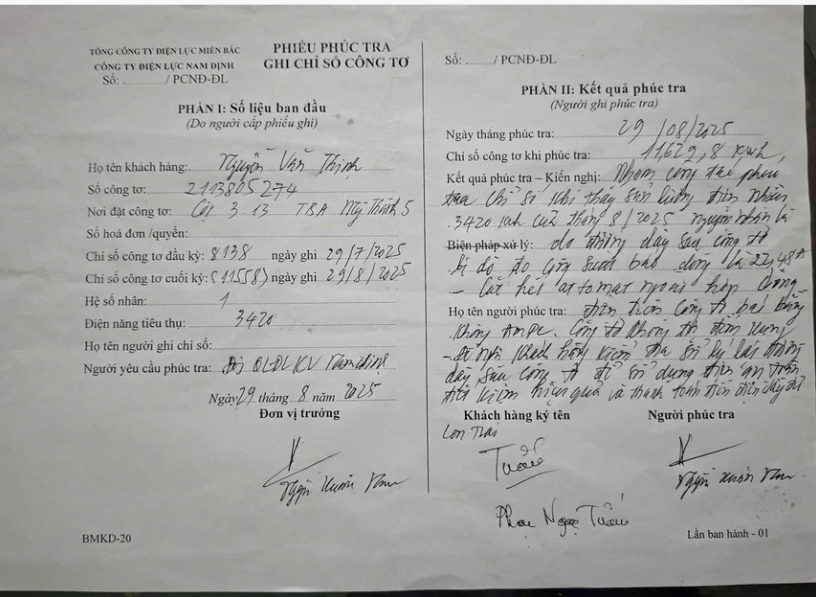 TỔNG CÔNG TY ĐIỆN LỰC MIỀN BẮC
CÔNG TY ĐIỆN LỰC NAM ĐỊNH
Số: ....... / PCNĐ-ĐL
PHIẾU PHÚC TRA
GHI CHỈ SỐ CÔNG TƠ
PHẦN I: Số liệu ban đầu
(Do người cấp phiếu ghi)
Họ tên khách hàng: Nguyễn Văn Thịnh
Số công tơ: 2113805274
Nơi đặt công tơ: Cột 3.13 TBA Mỹ Thịnh 5
Số hoá đơn /quyển:
Chỉ số công tơ đầu kỳ: 8138 ngày ghi 29/7/2025
Chỉ số công tơ cuối kỳ: (11558) ngày ghi 29/8/2025
Hệ số nhân: 1
Điện năng tiêu thụ: 3420
Họ tên người ghi chỉ số:
Người yêu cầu phúc tra: Đội QLĐLKV Nam Định
Ngày 29 tháng 8 năm 2025
Đơn vị trưởng
Xuân
BMKD-20
Số: ....... / PCNĐ-ĐL
PHẦN II: Kết quả phúc tra
(Người ghi phúc tra)
Ngày tháng phúc tra: 29/08/2025
Chỉ số công tơ khi phúc tra: 11,629,8 kwh,
Kết quả phúc tra – Kiến nghị: Nhóm công tác phúc
tra chỉ số khi thấy sản lượng điện nhiều
3420 kwh của tháng 8/2025 nguyên nhân là
Biện pháp xử lý: do đường dây sau công tơ
bị dò đo công suất báo dòng là 22,48A
- Cắt hết attomat ngoài hộp công
Họ tên người phúc tra: công tơ báo bằng
không Ampe. Công tơ không tố điện
- Đề nghị khách hàng kiểm tra xử lý lại đường
dây sau công tơ để sử dụng điện an toàn
tiết kiệm hiệu quả và thanh toán tiền điện đầy đủ
Khách hàng ký tên
Con Trai
Tuấn
Ngọc Tuấn
Người phúc tra
Xuân
Lần ban hành - 01